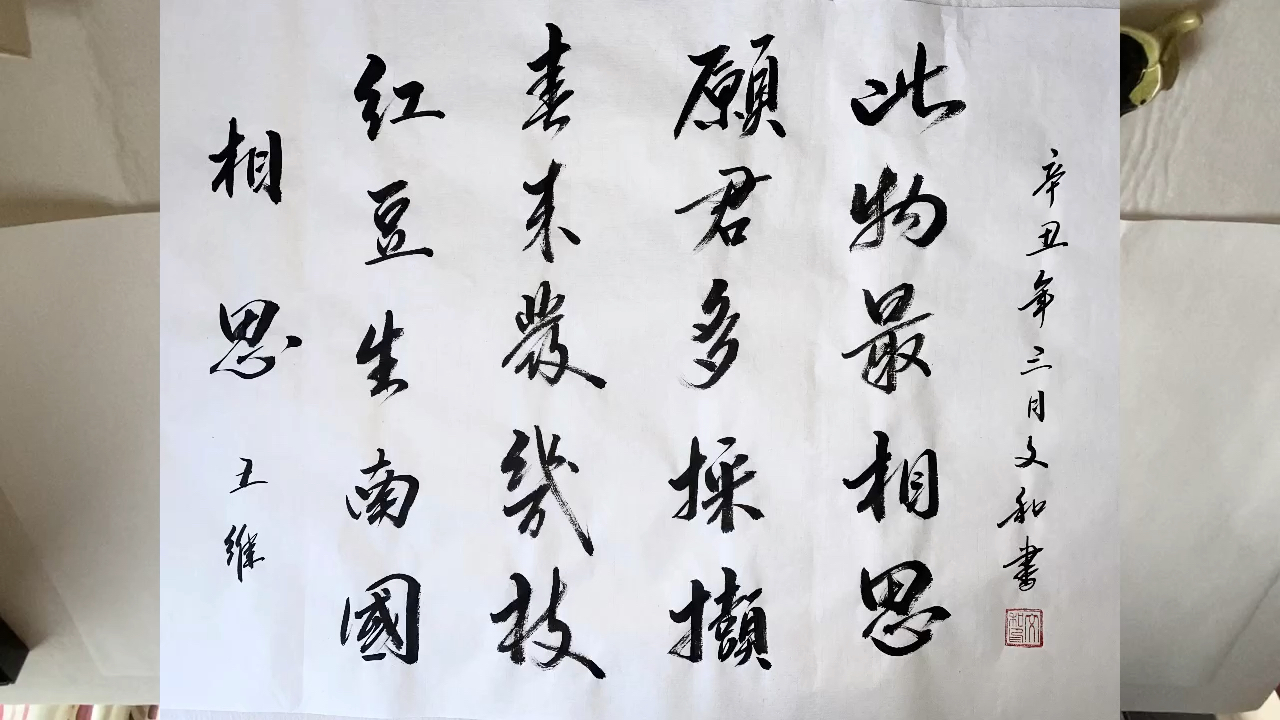 相思 王維
红豆生南國
春来發幾枝
願君多採擷
此物最相思
辛丑年三月文和書